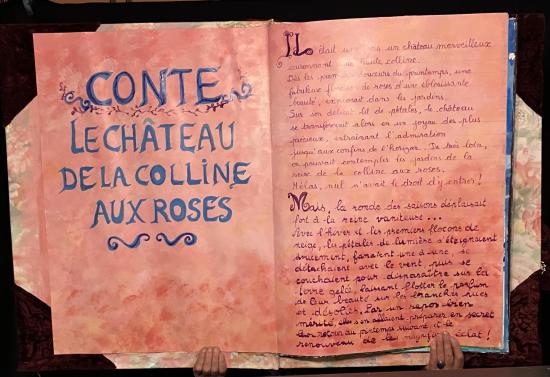 CONTE
LE CHÂTEAU
DE LA COLLINE
AUX ROSES
Il était une fois un château merveilleux
couronnant une haute colline.
Dès les premières douceurs du printemps, une
fabuleuse floraison de roses d'une éblouissante
beauté, explosait dans les jardins.
Sur son délicat lit de pétales, le château
se transformait alors en un joyau des plus
précieux, entraînant l'admiration
jusqu'aux confins de l'horizon. De très loin,
on pouvait contempler les jardins de la
reine de la colline aux roses.
Hélas, nul n'avait le droit d'y entrer !
Mais, la ronde des saisons déplaisait
fort à la reine vaniteuse...
Avec l'hiver et les premiers flocons de
neige, les pétales de lumière s'éteignaient
doucement, fanaient une à une, se
détachaient avec le vent puis se
couchaient pour disparaître sur la
terre gelée, laissant flotter le parfum
de leur beauté sur les branches nues
et désolées. Par un repos bien
mérité, elles s'en allaient préparer en secret
leur retour au printemps suivant et le
renouveau de leur magnifique éclat !